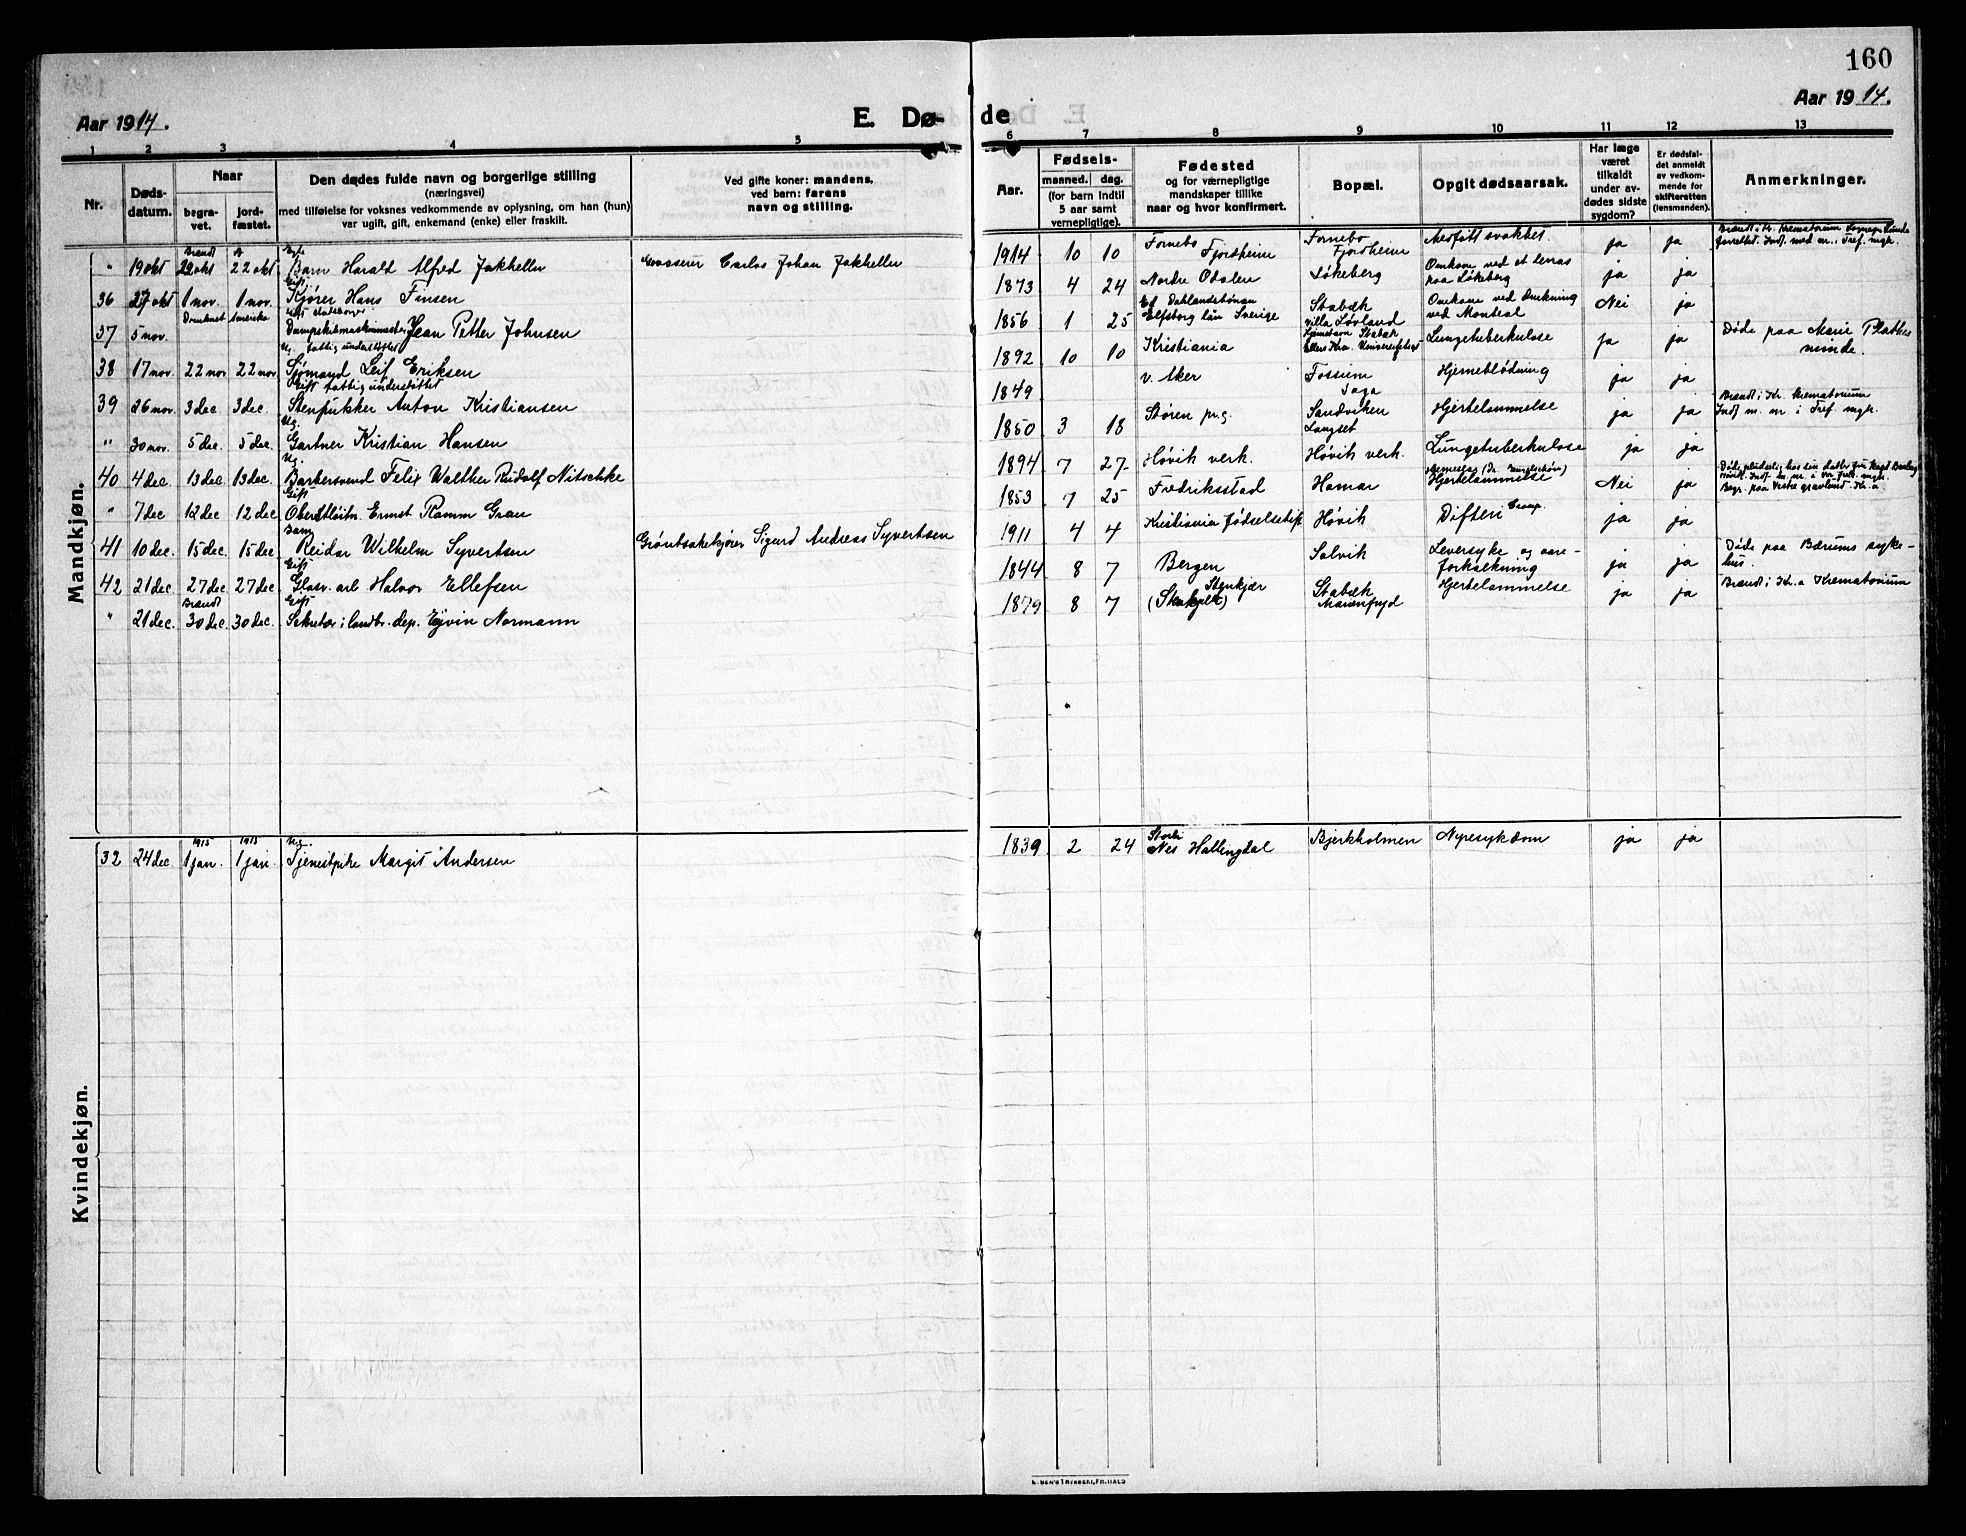 160
Aar 1914.
E. Døde
Aar 1914.
1 2 3 4 5 6 7 8 9 10 11 12 13
Nr.
Døds-
datum.
Naar
begra-
vet.
jord-
fæstet.
Den dødes fulde navn og borgerlige stilling
(næringsvei)
med tilføielse for voksnes vedkommende av oplysning, om han (hun)
var ugift, gift, enkemand (enke) eller fraskilt.
Ved gifte koner: mandens,
ved barn: farans
navn og stilling.
Aar.
Fødsels-
maaned. dag.
(for barn indtil
5 aar samt
vernepligtige).
Fødested
og for værnepligtige
mandskaper tillike
naar og hvor konfirmert.
Bopæl.
Opgit dødsaarsak.
Har læge
været
tilkaldt
under av-
dødes sidste
sygdom?
Er dødsfal-
det anmeldt
av vedkom-
mende for
skifteretten
(lensmanden).
Anmerkninger.
Mandkjøn.
" 19 okt Brændt 22 okt 22 okt Barn Harald Alfred Jakhelln Grosserer Carlos Johan Jakhelln 1914 10 10 Fornebo Fjordheim Fornebo Fjordheim Medfødt svakhet. ja ja
36 27 okt 1 nov. 1 nov. Gift Kjører Hans Finsen 1873 4 24 Nordre Odalen Løkeberg Omkom ved et lerras paa Løkeberg ja ja
37 5 nov. Druknet Amerika Dampskibmaskinmester Jean Petter Johnsen 1856 1 25 Elfsborg län Sverige Stabæk villa Løvland Omkom ved Drukning ved Montreal Nei ja
38 17 nov. 22 nov 22 nov. Ug. fattig understøttet Sjømand Leif Eriksen 1892 10 10 Kristiania Lungetuberkulose ja ja Døde paa Marie Plathes minde.
39 26 nov. 3 dec. 3 dec. Gift fattig understøttet Stenpukker Anton Kristiansen 1849 v. Aker Fossum Saga Hjerneblødning ja ja
" 30 nov. 5 dec. 5 dec. Ug. Gartner Kristian Hansen 1850 3 18 Støren pr.g. Sandviken Langset Hjertelammelse ja ja Brændt i Kr. Krematorium
40 4 dec. 13 dec. 13 dec. Ug. Barbersvend Felix Walther Rudolf Nitschke 1894 7 27 Høvik verk. Høvik verk. Lungetuberkulose ja ja
" 7 dec 12 dec. 12 dec. Gift Oberstløitn. Ernst Ramm Gran 1853 7 25 Fredriksstad Hamar Hjertelammelse Nei ja
41 10 dec. 15 dec. 15 dec. Barn Reidar Wilhelm Syvertsen Grøntsakskjører Sigurd Andreas Syvertsen 1911 4 4 Kristiania Fødselsstift. Høvik Difteri Croup. ja ja
42 21 dec. 27 dec. 27 dec. Gift Glasv. arb Halvor Ellefsen 1844 8 7 Bergen Solvik Leversyke og aareforkalkning ja ja Døde paa Bærums sykehus.
" 21 dec. Brændt 30 dec. 30 dec. Gift Sekretær i landbr. dep. Eyvin Normann 1879 8 7 Stenkjær Stabæk Marienfryd Hjertelammelse ja ja Brændt i Kr.a Krematorium
Kvindekjøn.
32 24 dec. 1915 1 jan. 1915 1 jan. Ug. Tjenestpike Margit Andersen 1839 2 24 Nes Hallingdal Bjerkholmen Nyresykdom ja ja